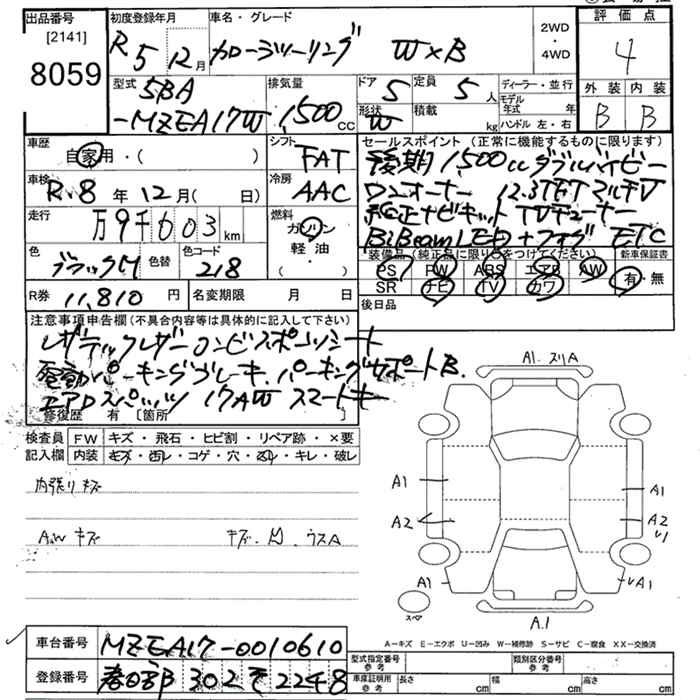 出品番号 初度登録年月 車名・グレード 2WD 評価点
[2141] R5年12月 カローラツーリング W×B ・4WD 4
8059
型式 排気量 ドア 定員 ディーラー・並行 外装 内装
5BA 1,500cc 5 5人 モデル年式 年 B B
-MZEA17W 形状 W 積載 kg ハンドル 左・右
車歴 シフト セールスポイント(正常に機能するものに限ります)
自家用・( ) FAT 後期 1,500cc ダブルバイビー
車検 冷房 Dユーオーナー 12.3TFTマルチV
R.8年12月(日) AAC 純正ナビキット TVチューナー
走行 燃料 BiBeam LED+フォグ ETC
万9千603km ガソリン
色 色替 色コード 軽・油 装備品(純正品に限り○をつけてください) 新車保証書
ブラックM 218 ( ・ ) PS PW ABS エアB AW 有・無
SR ナビ TV カワ
R券 11,810円 名変期限 月 日 後日品
注意事項申告欄(不具合内容等は具体的に記入して下さい)
レザテックレザーコンビスポーツシート
電動パーキングブレーキ.パーキングサポートB.
エアロスパッツ 17AW スマートキー
修復歴 有 [箇所 ]
A1.スリA
検査員 FW キズ・飛石・ヒビ割・リペア跡・×要
記入欄 内装 キズ・凹・コゲ・穴・・キレ・破レ
内張りキズ A1 A1
A2 A2
AWキズ キズ.凹.ウスA
A1 A1
スペア
A.1
A-キズ E-エクボ U-凹み W-補修跡 S-サビ C-腐食 XX-交換済
車台番号 MZEA17-0010610
型式指定番号 参考 類別区分番号 参考
登録番号 春日部 302 そ 2248
車庫証明用 参考 長さ cm 幅 cm 高さ cm